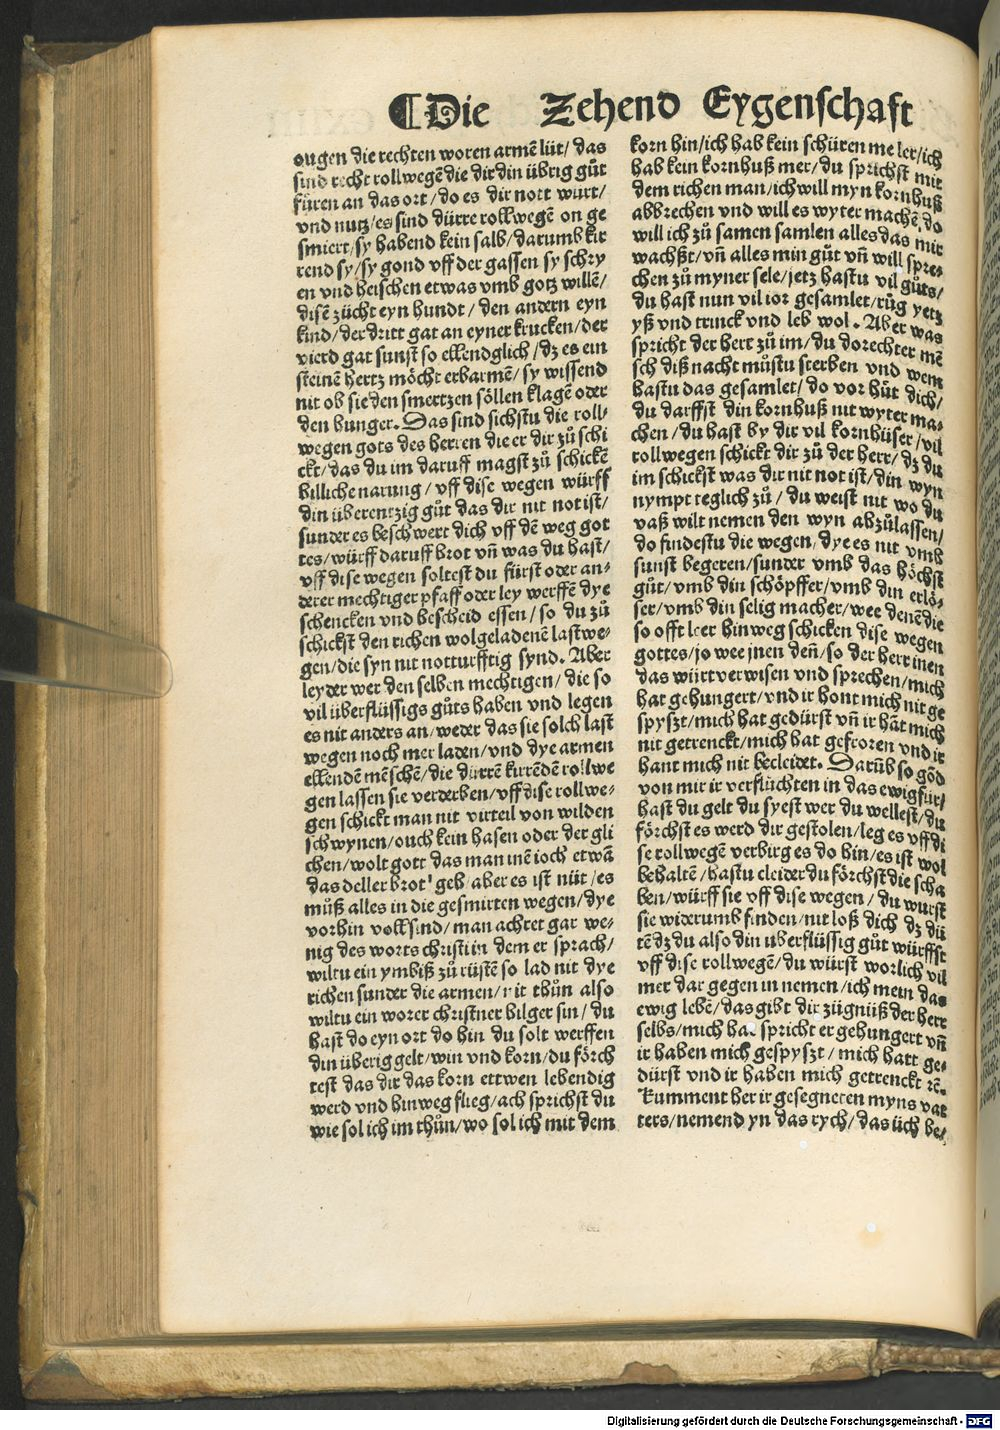 ¶Die Zehend Eygenschaft
ougen die rechten woren armē lüt/ das
sind recht rollwegē die dir din übrig gůt
füren an das ort/do es dir nott wurt/
vnd nutz/es sind dürre rollwegē on ge
smiert/sy habend kein salb/darumb kir
rend sy/sy gond vff der gassen sy schry
en vnd heischen etwas vmb gotz willē/
disē zücht eyn hundt/ den andern eyn
kind/der dritt gat an eyner krucken/der
vierd gat sunst so ellendglich/dz es ein
steinē hertz möcht erbarmē/sy wissend
nit ob sie den smertzen söllen klagē oder
den hunger. Das sind sichstu die roll/
wegen gots des herren die er dir zů schi
ckt/das du im daruff magst zů schickē
billiche narung/ vff dise wegen würff
din überentzig gůt das dir nit not ist/
sunder es beschwert dich vff dē weg got
tes/würff daruff brot vn̄ was du hast/
vff dise wegen soltest du fürst oder an/
derer mechtiger pfaff oder ley werffē dye
schencken vnd bescheid essen/ so du zů
schickst den richen wolgeladenē lastwe/
gen/die syn nit notturfftig synd. Aber
leyder wer den selben mechtigen/ die so
vil überflüssigs gůts haben vnd legen
es nit anders an/weder das sie solch last
wegen noch mer laden/vnd dye armen
ellendē mēschē/die dürrē kirrēdē rollwe
gen lassen sie verderben/vff dise rollwe/
gen schickt man nit virteil von wilden
schwynen/ouch kein hasen oder der gli
chen/wolt gott das man inē ioch etwā
das deller brot geb/aber es ist nüt/es
můß alles in die gesmirten wegen/dye
vorhin voll sind/man achtet gar we/
nig des worts christi in dem er sprach/
wiltu ein ymbiß zů rüstē so lad nit dye
richen sunder die armen/nit thůn also
wiltu ein worer christner bilger sin/ du
hast do eyn ort do hin du solt werffen
din überig gelt/win vnd korn/du förch
test das dir das korn ettwen lebendig
werd vnd hinweg flieg/ach sprichst du
wie sol ich im thůn/wo sol ich mit dem
korn hin/ich hab kein schüren me ler/ich
hab kein kornhuß mer/du sprichst mit
dem richen man/ich will myn kornhuß
abbrechen vnd will es wyter machē/do
will ich zů samen samlen alles das mir
wachßt/vn̄ alles min gůt vn̄ will spre/
chen zů myner sele/jetz hastu vil gůts/
du hast nun vil ior gesamlet/růg yetz
yß vnd trinck vnd leb wol. Aber was
spricht der herr zů im/du dorechter mē
sch diß nacht můstu sterben vnd wem
hastu das gesamlet/do vor hüt dich/
du darffst din kornhuß nit wyter ma/
chen/du hast by dir vil kornhüser/vil
rollwegen schickt dir zů der herr/dz du
im schickst was dir nit not ist/din wyn
nympt teglich zů/ du weist nit wo du
vaß wilt nemen den wyn abzůlassen/
do findestu die wegen/dye es nit vmb
sunst begeren/sunder vmb das höchst
gůt/vmb din schöpffer/vmb din erlö/
ser/vmb din selig macher/wee denē die
so offt leer hinweg schicken dise wegen
gottes/jo wee jnen den̄/so der herr inen
das würt verwisen vnd sprechen/mich
hat gehungert/vnd ir hont mich nit ge
spyszt/mich hat gedürst vn̄ ir hāt mich
nit getrenckt/mich hat gefroren vnd ir
hant mich nit becleidet. Darūb so gōd
von mir ir verflüchten in das ewig für/
hast du gelt du syest wer du wellest/du
förchst es werd dir gestolen/leg es vff di
se rollwegē verbirg es do hin/es ist wol
behaltē/hastu cleider du förchst die scha
ben/würff sie vff dise wegen/ du wurst
sie widerumb finden/nit loß dich dz dü
tē dz du also din überflüssig gůt würffst
vff dise rollwegē/du würst worlich vil
mer dar gegen in nemen/ich mein das
ewig lebē/das gibt dir zügnüß der herr
selbs/mich hat spricht er gehungert vn̄
ir haben mich gespyszt/ mich hatt ge/
dürst vnd ir haben mich getrenckt rē.
Kumment her ir gesegneten myns vat
ters/nemend yn das rych/das üch be/
Digitalisierung gefördert durch die Deutsche Forschungsgemeinschaft - DFG